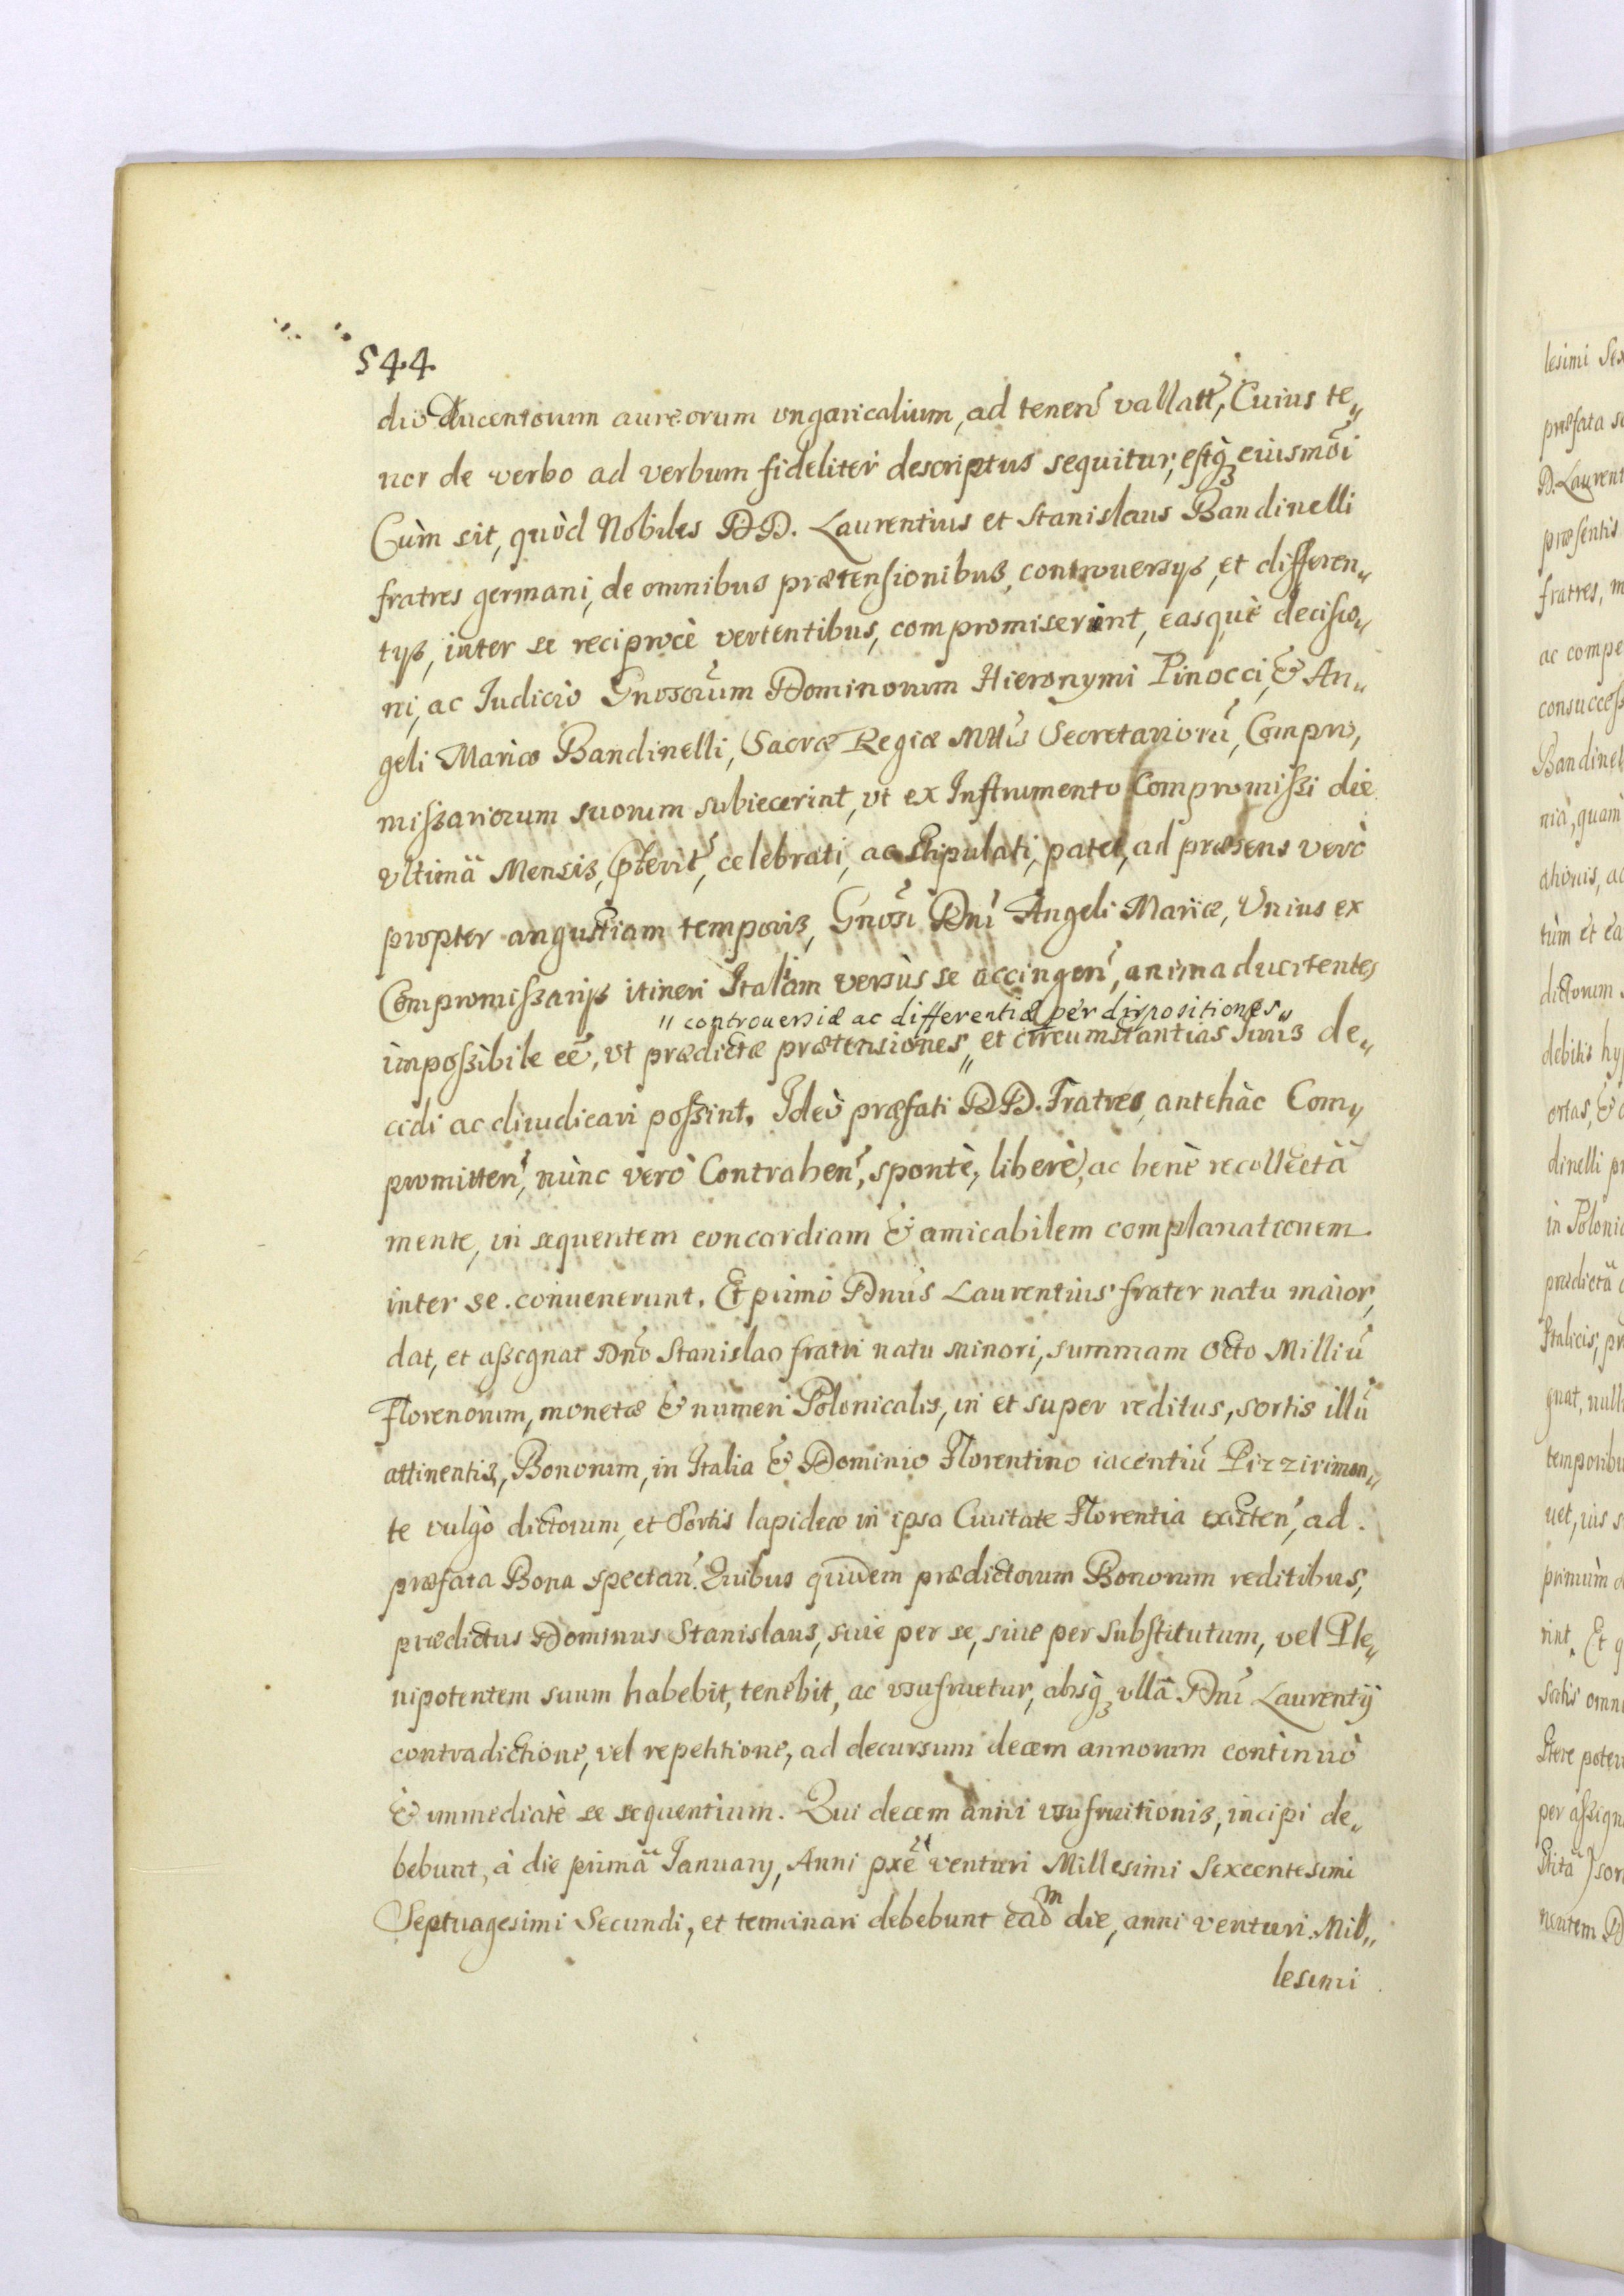 544
dio Ducentorum aureorum ungaricalium, ad tenen̄ vallatt̄, Cuius te„
nor de verbo ad verbum fideliter descriptus sequitur, estq̀₃ eiusmōi
Cùm sit, quòd Nobiles DD. Laurentius et Stanislaus Bandinelli
fratres germani, de omnibus prætensionibus, controuersijs, et differen„
tijs, inter se reciprocè vertentibus, compromiserint, easquè decisio„
ni, ac Iudicio Gnosorūm Dominorum Hieronymi Pinocci, & An„
geli Mariæ Bandinelli, Sacræ Regiæ Mttis Secretariorū, Compro,
missariorum suorum subiecerint, vt ex Instrumento Compromissi die
vltimā Mensis, Pterit̄, celebrati, ac stipulati, patet, ad præsens verò
propter angustiam temporis, Gnosi Dni Angeli Mariæ, Vnius ex
Compromissarijs itineri Italiam versùs se accingen̄, animaduertentes
„ controuersiæ ac differentiæ per dispositiones„
impossibile eē, vt prædictæ prætensiones„ et circumstantias Iuris de„
cidi ac diiudicari possint. Ideò præfati DD. Fratres, antehàc Com„
promitten̄, nùnc verò Contrahen̄, spontè, liberè, ac benè recollectā
mente, in sequentem concordiam & amicabilem complanationem
inter se conuenerunt. Et primò Dnus Laurentius frater natu maior,
dat, et assignat Dno Stanislao fratri natu minori, summam octo Milliū
Florenorum, monetæ & numeri Polonicalis, in et super reditus, sortis illū
attinentis, Bonorum, in Italia & Dominio Florentino iacentiū Pizzirimon„
te vulgò dictorum, et Sortis lapideæ in ipsa Ciuitate Florentia existen̄, ad
præfata Bona spectan̄. Quibus quidem prædictorum Bonorum reditibus,
prædictus Dominus Stanislaus, siue per se, siue per substitutum, vel Ple„
nipotentem suum habebit, tenebit, ac vsufruetur, absq̀₃ vllā Dni Laurentij
contradictione, vel repetitione, ad decursum decem annorum continuò
& immediatè se sequentium. Qui decem anni vsufruitionis, incipi de„
bebunt, à die primā Ianuarij, Anni pxē venturi Millesimi Sexcentesimi
Septuagesimi Secundi, et terminari debebunt eadm die, anni venturi Mil„
lesimi